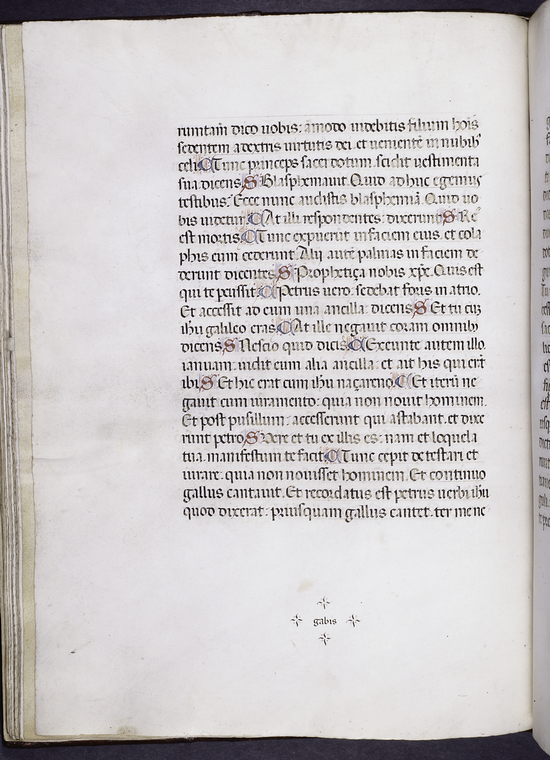 runtam dico uobis: amodo uidebitis filium hois
sedentem a dextris uirtutis dei. et uenientē in nubib'
celi. C Tunc princeps sacerdotum. scidit uestimenta
sua dicens. S Blasphemauit. Quid adhuc egemus
testibus. Ecce nunc audistis blasphemiā. Quid uo
bis uidetur. C At illi respondentes: dixerunt. S Re
est mortis. C Tunc expuerūt in faciem eius. et cola
phis eum ceciderunt. Alij autē palmas in faciem de
derunt dicentes. S Prophetiça nobis xpe. Quis est
qui te pcussit. C Petrus uero: sedebat foris in atrio.
Et accessit ad eum una ancilla: dicens. S Et tu cū
ihu galileo eras. C At ille negauit coram omnib;
dicens. S Nescio quid dicis. C Exeunte autem illo
ianuam: uidit eum alia ancilla: et ait his qui erāt
ibi. S Et hic erat cum ihu naçareno. C Et iterū ne
gauit cum iuramento: quia non nouit hominem.
Et post pusillum: accesserunt qui astabant. et dixe
runt petro. S Vere et tu ex illis es: nam et loquela
tua. manifestum te facit. C Tunc cepit detestari et
iurare. quia non nouisset hominem. Et continuo
gallus cantauit. Et recordatus est petrus uerbi ihu
quod dixerat: priusquam gallus cantet. ter me ne
gabis